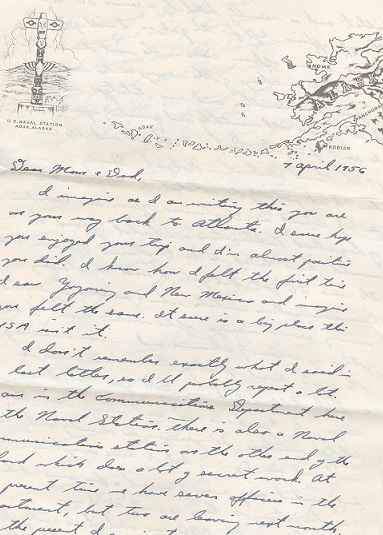 U.S. NAVAL STATION
ADAK, ALASKA
NOME
ADAK
KODIAK
7 April 1956
Dear Mom & Dad,
I imagine as I am writing this you are
on your way back to Atlanta. I sure hope
you enjoyed your trip and I'm almost positive
you did. I know how I felt the first time
I saw Wyoming and New Mexico and imagine
you felt the same. It sure is a big place this
USA isn't it.
I don't remember exactly what I said in
last letter, so I'll probably repeat a lot.
am in the Communications Department here
the Naval Station. There is also a Naval
communications station on the other end of the
land which does a lot of secret work. At
present time we have seven officers in the
department, but two are leaving next month.
the present I